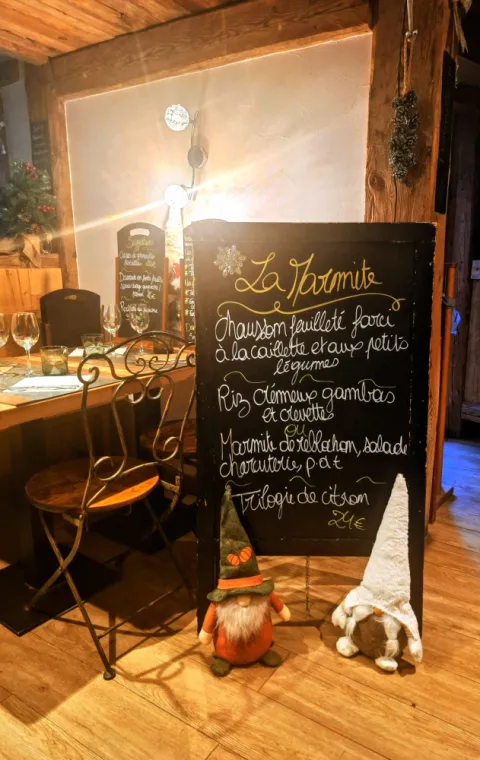 La Marmite
Chausson feuilleté farci
à la caillette et aux petits
légumes
Riz crémeux gambas
et crevettes
ou
Marmite de reblochon, salade
charcuterie, pdt
Trilogie de citron
29€